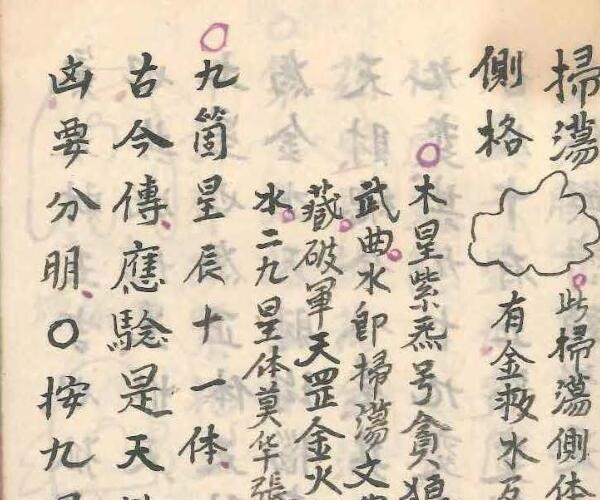 掃蕩　此掃蕩側体
側格　有金救水
木星紫炁号貪狼
武曲水即掃蕩文
藏破軍天罡金火
水二九星体莫华張
九箇星辰十一体
古今傳應驗是天
凶要分明〇按九